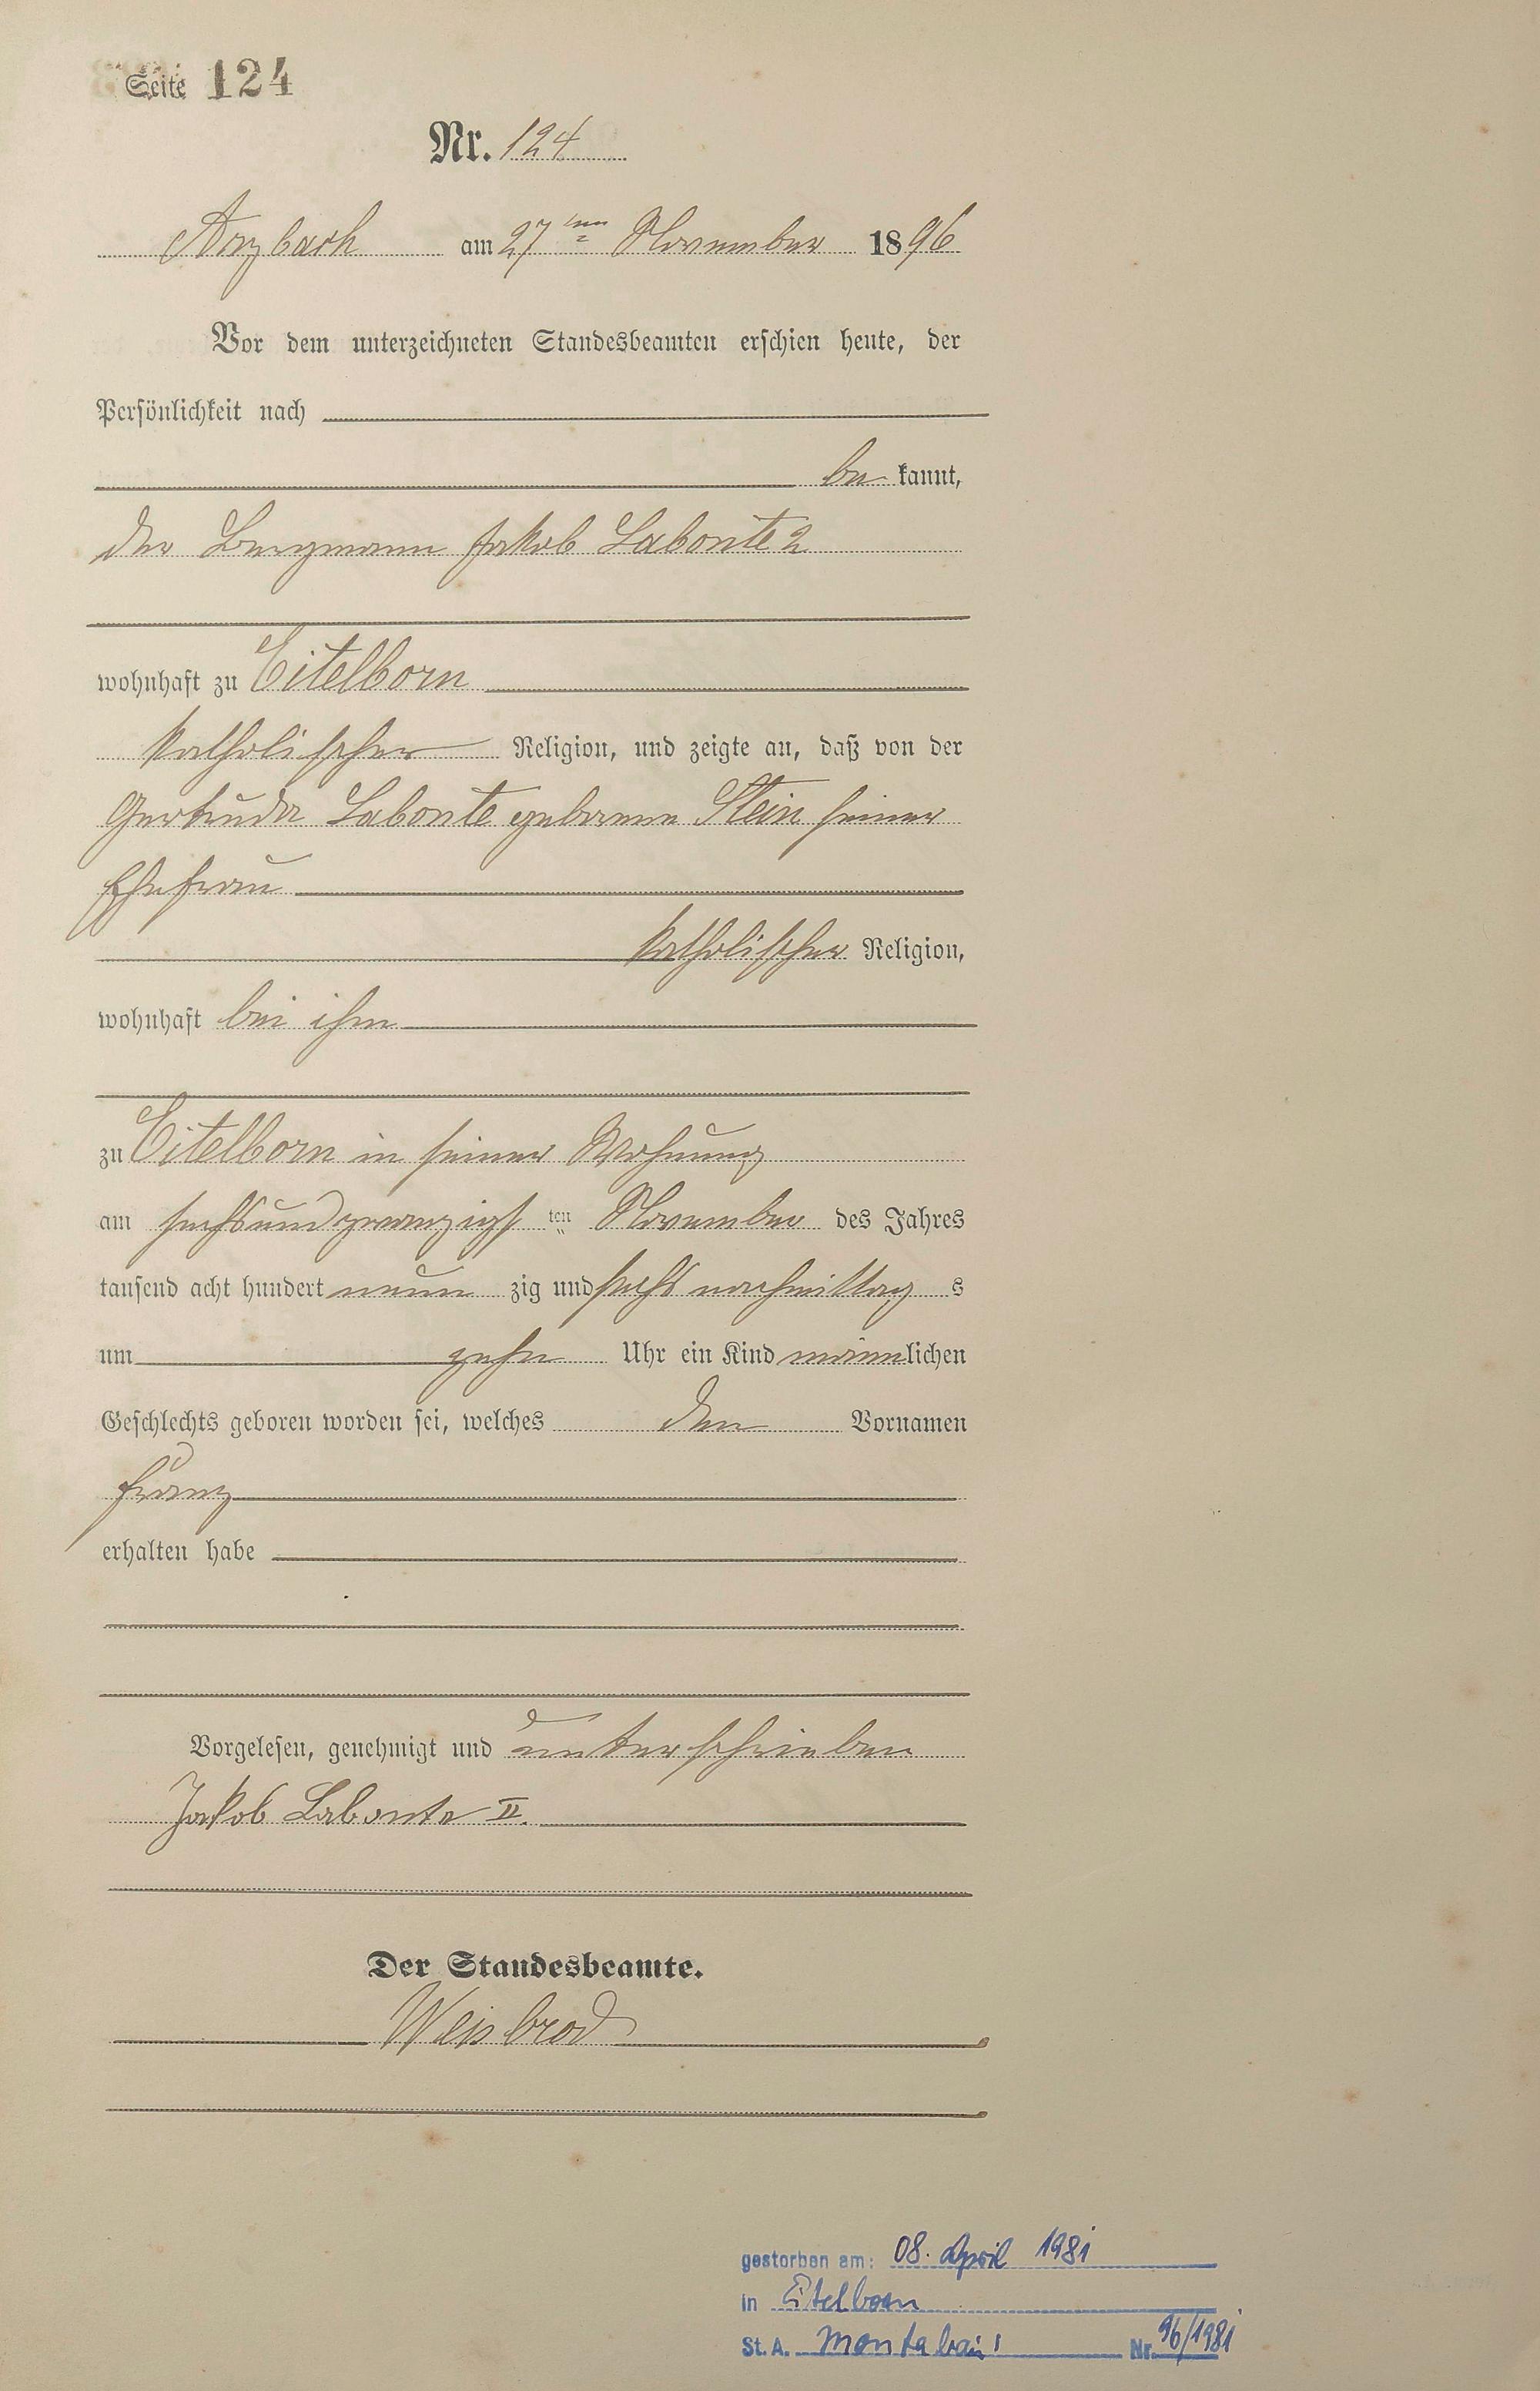 Seite 124
Nr. 124
Arzbach am 27ten November 1896
Vor dem unterzeichneten Standesbeamten erschien heute, der
Persönlichkeit nach
be kannt,
der Bergmann Jakob Labonte 2
wohnhaft zu Eitelborn
katholischer Religion, und zeigte an, daß von der
Gertruda Labonte geborene Stein seiner
Ehefrau
katholischer Religion,
wohnhaft bei ihm
zu Eitelborn in seiner Wohnung
am sechsundzwanzigs ten November des Jahres
tausend acht hundert neun zig und sechs nachmittag s
um zehn Uhr ein Kind männlichen
Geschlechts geboren worden sei, welches den Vornamen
Franz
erhalten habe
Vorgelesen, genehmigt und unterschrieben
Jakob Labonte II.
Der Standesbeamte.
Weisbrod
gestorben am: 08. April 1981
in Eitelborn
St. A. Montabaur Nr. 96/1981